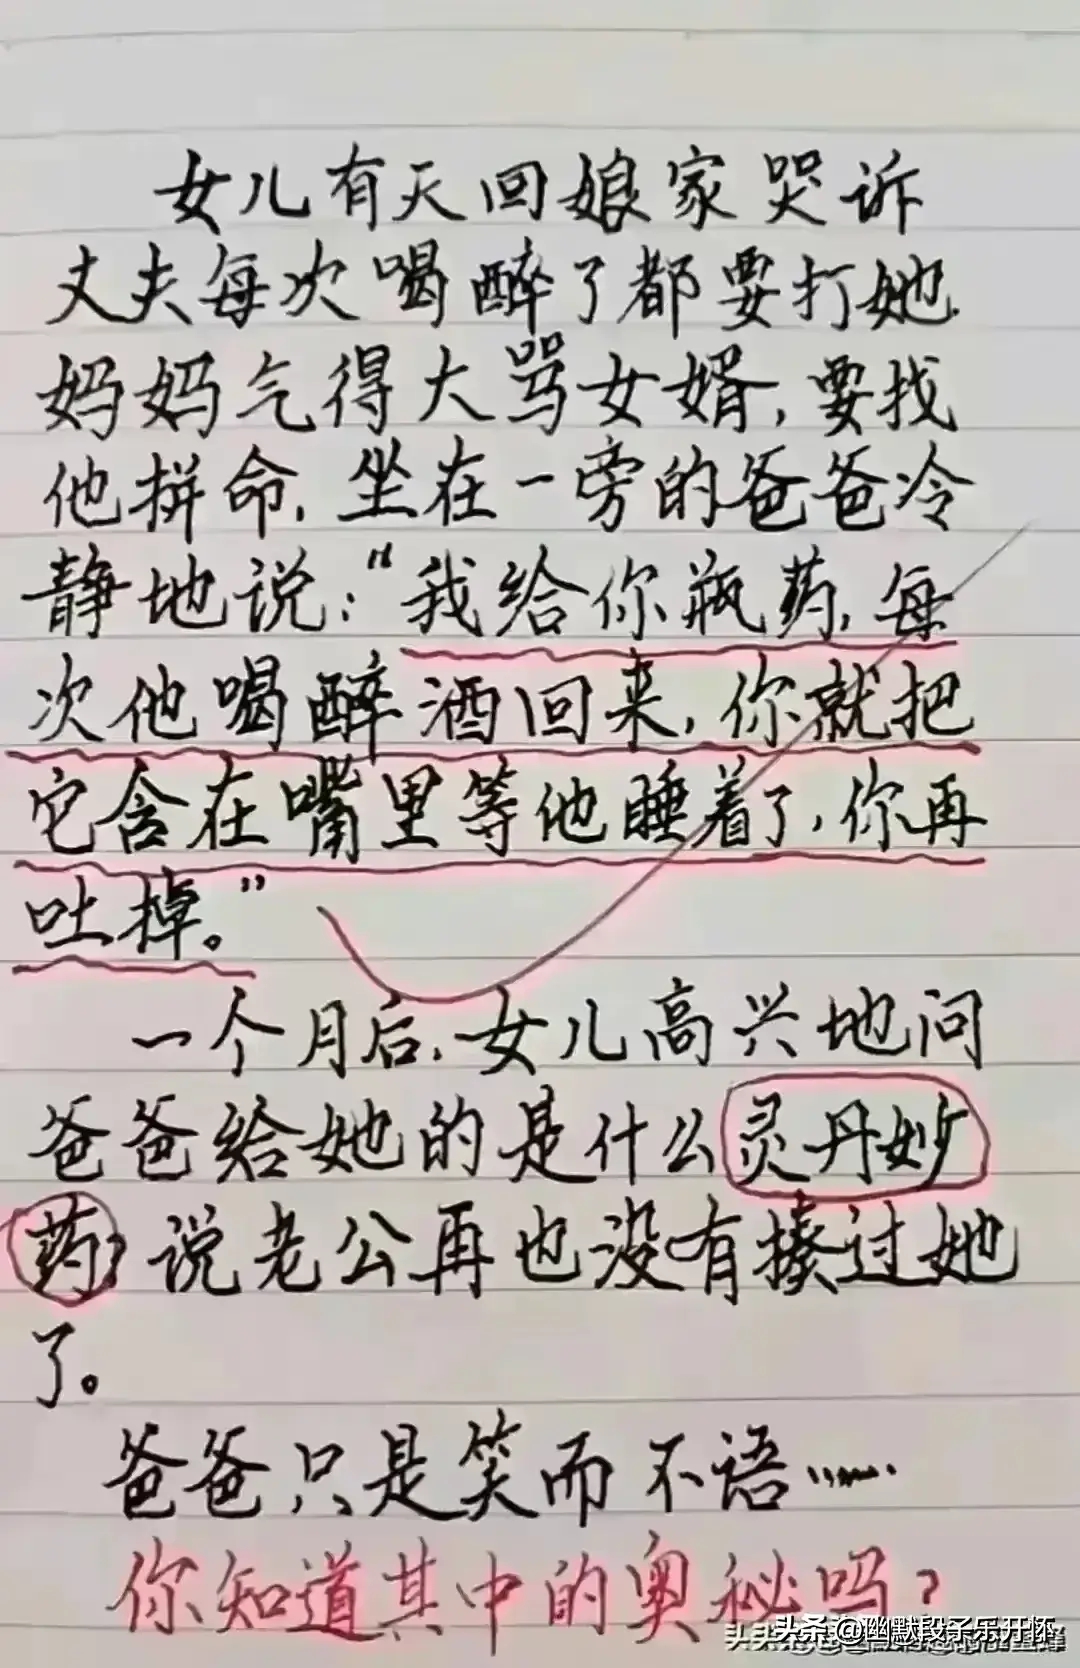 女儿有天回娘家哭诉
丈夫每次喝醉了都要打她.
妈妈气得大骂女婿,要找
他拼命,坐在一旁的爸爸冷
静地说:“我给你瓶药,每
次他喝醉酒回来,你就把
它含在嘴里等他睡着了,你再
吐掉。”
一个月后,女儿高兴地问
爸爸给她的是什么灵丹妙
药?说老公再也没有揍过她
了。
爸爸只是笑而不语……
你知道其中的奥秘吗?
头条@幽默段子乐开怀